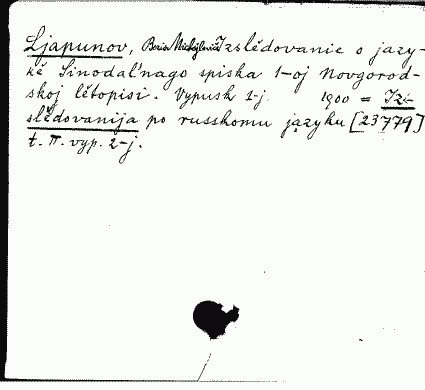 Ljapunov, Boris Michajlovič Izslědovanie o jazy-
kě Sinodal'nago spiska 1-oj Novgorod-
skoj lětopisi. Vypusk 1-j. 1900 = Iz-
slědovanija po russkomu jazyku [23779]
t. II. vyp. 2-j.